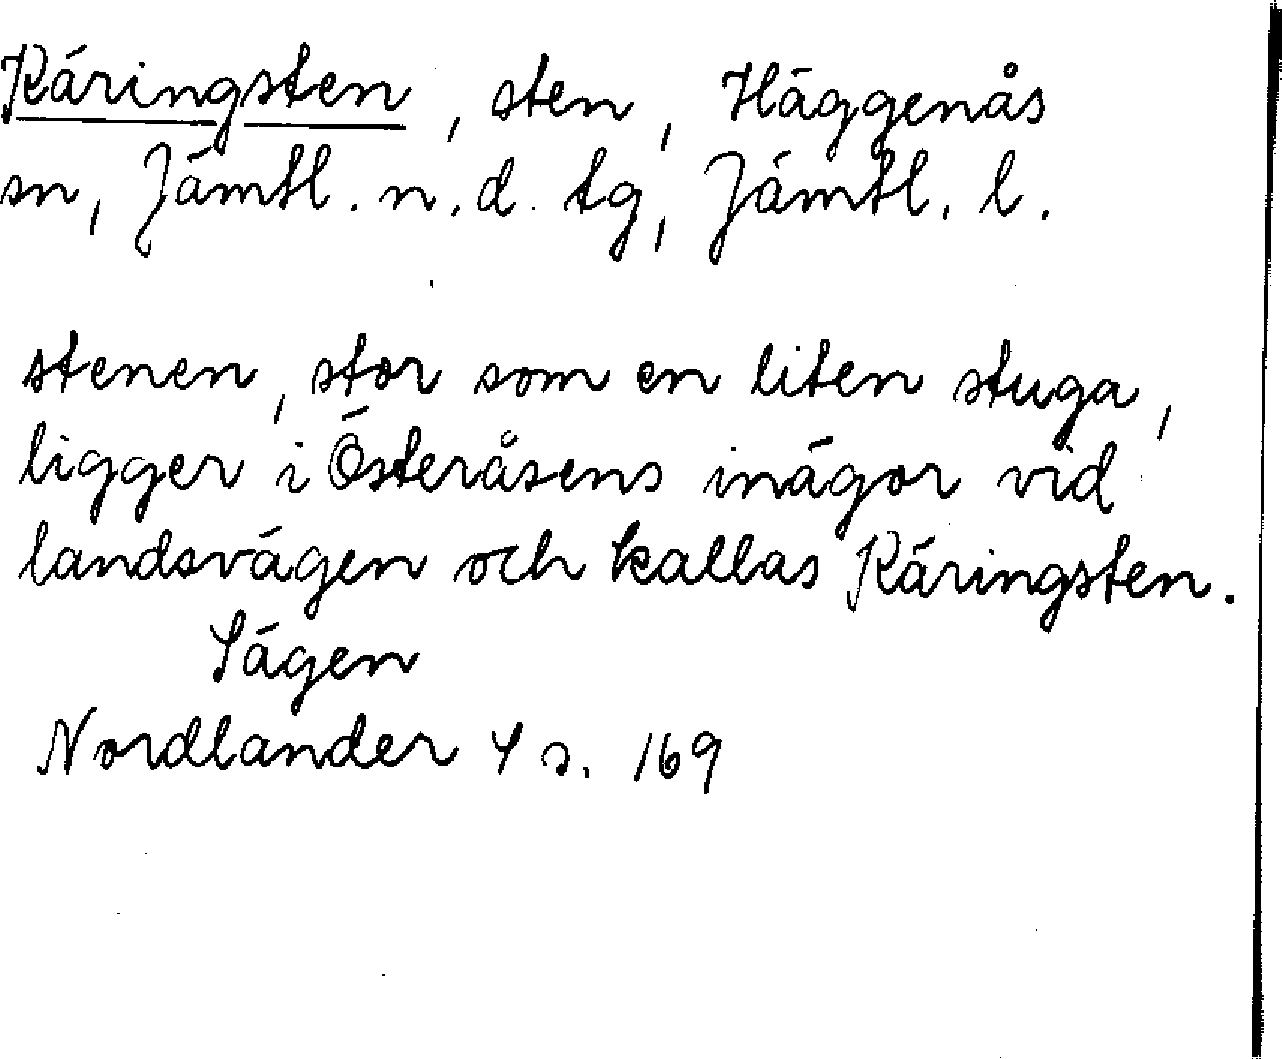 Käringsten, sten, Häggenås
sn, Jämtl. n. d. tg, Jämtl. l.
stenen, stor som en liten stuga,
ligger i Österåsens inägor vid
landsvägen och kallas Käringsten.
Sägen
Nordlander 4 s. 169